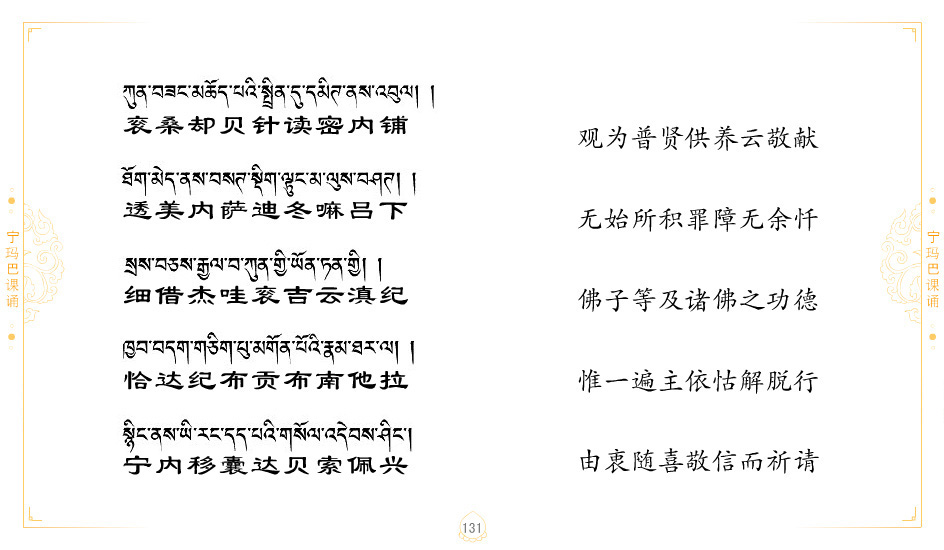 ཀུན་བཟང་མཆོད་པའི་སྤྲིན་དུ་དམིཊ་ནས་འབུལ། །
衮桑却贝针读密内铺
ཐོག་མེད་ནས་བསཊ་སྡིག་ལྟུང་མ་ལུས་བཤཊ། །
透美内萨迪冬嘛吕下
སྲས་བཅས་རྒྱལ་བ་ཀུན་གྱི་ཡོན་ཏན་གྱི། །
细借杰哇衮吉云滇纪
ཁྱབ་བདག་གཅིག་པུ་མགོན་པོའི་རྣམ་ཐར་ལ། །
恰达纪布贡布南他拉
སྙིང་ནས་ཡི་རང་དད་པའི་གསོལ་འདེབས་ཤིང་།
宁内移囊达贝索佩兴
观为普贤供养云敬献
无始所积罪障无余忏
佛子等及诸佛之功德
惟一遍主依怙解脱行
由衷随喜敬信而祈请
宁玛巴课诵
宁玛巴课诵
131